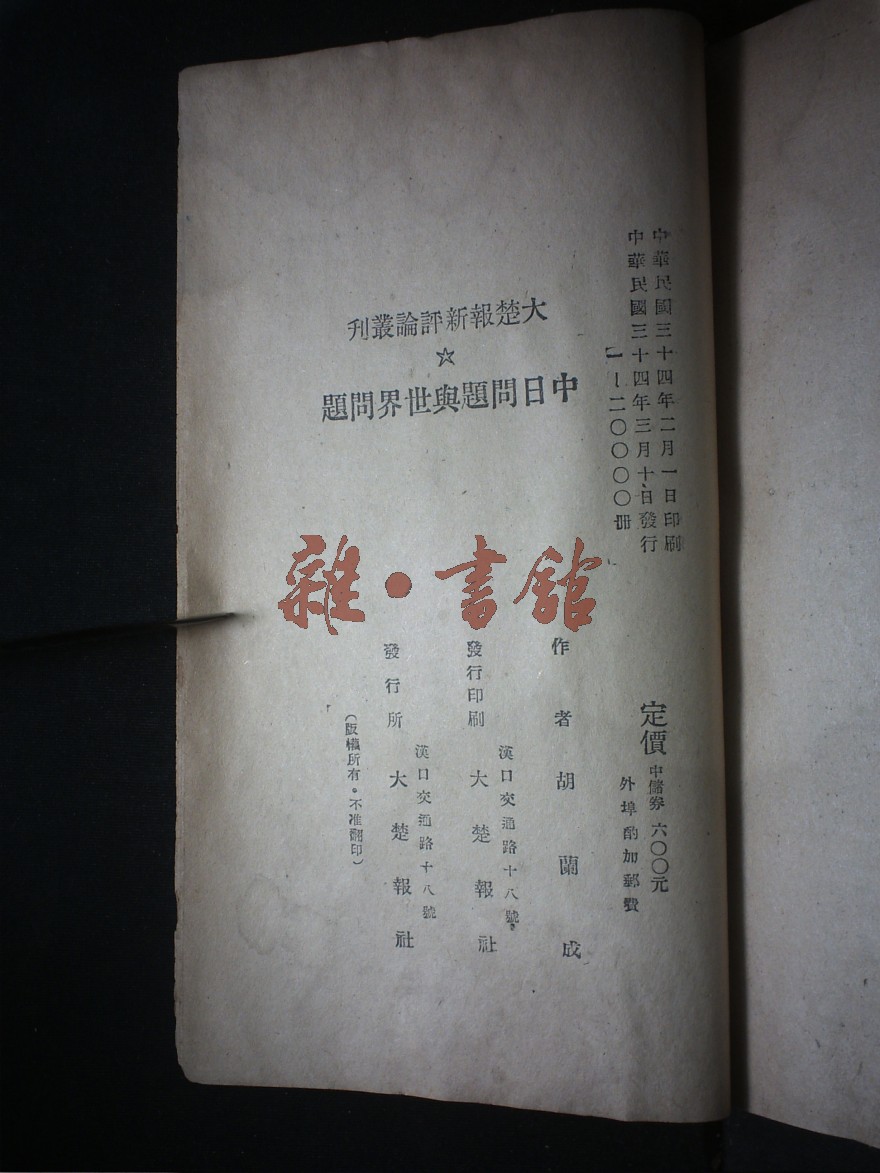 中華民國三十四年二月一日印刷
中華民國三十四年三月十日發行
【一—二〇〇〇〇冊
定價 中儲劵 六〇〇元
外埠酌加郵費
大楚報新評論叢刊
☆
中日問題與世界問題
雜·書館
作者 胡蘭成
漢口交通路十八號
發行印刷 大楚報社
漢口交通路十八號
發行所 大楚報社
(版權所有。不准翻印)